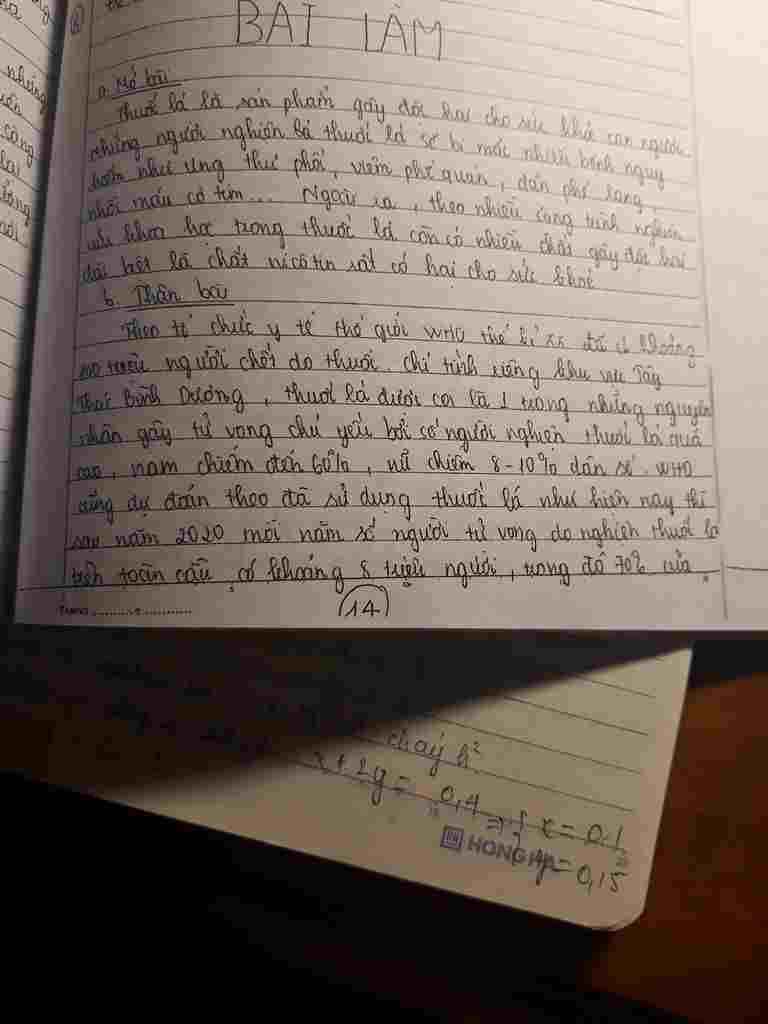 BAI LÀM
a. Mở bài
Thuốc lá là sản phẩm gây độc hại cho sức khỏe con người
những người nghiện lá thuốc lá sẽ bị mắc nhiều bệnh nguy
hiểm như ung thư phổi, viêm phế quản, dán phế
nhồi máu cơ tim... Ngoài ra, theo nhiều công trình nghiên
cứu khoa học trong thuốc lá còn có nhiều chất gây độc hại
đặc biệt là chất nicôtin rất có hại cho sức khoẻ
b. Thân bài
Theo tổ chức y tế thế giới WHO thế kỉ XX đã có khoảng
100 triệu người chết do thuốc. Chỉ tính riêng khu vực Tây
Thái Bình Dương, thuốc lá được coi là 1 trong những nguyên
nhân gây tử vong chủ yếu bởi số người nghiện thuốc lá quá
cao, nam chiếm đến 60%, nữ chiếm 8-10% dân số. WHO
cũng dự đoán theo đã sử dụng thuốc lá như hiện nay thì
sau năm 2020 mỗi năm số người tử vong do nghiện thuốc lá
trên toàn cầu có khoảng 8 triệu người, trong đó 70% của
14
cháy h²
x + 2y = 0,4 => { x = 0,1
HONG HA
y = 0,15